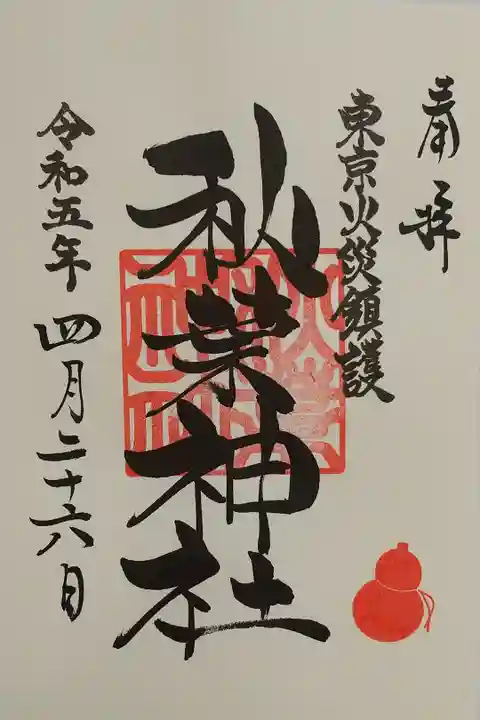 奉拝
東京火災鎮護
秋葉神社
令和五年四月二十六日